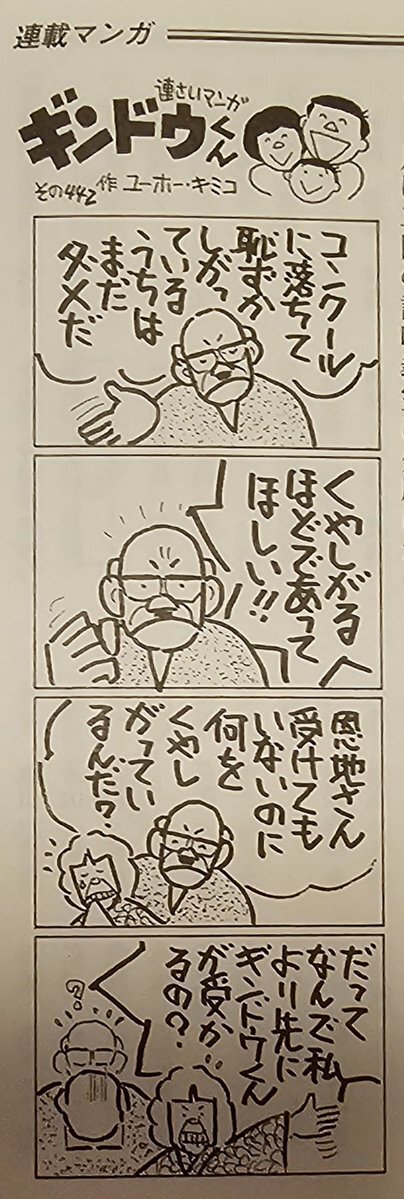 連載マンガ
連さいマンガ
ギンドウくん
その442 作 ユーホー・キミコ
コンクール
に落ちて
恥ずか
しがっ
ている
うちは
まだ
ダメだ
くやしがる
ほどであって
ほしい!!
恩地さん
受けても
いないのに
何を
くやし
がってい
るんだ?
だって
なんで私
より先に
ギンドウくん
が受か
るの?
?